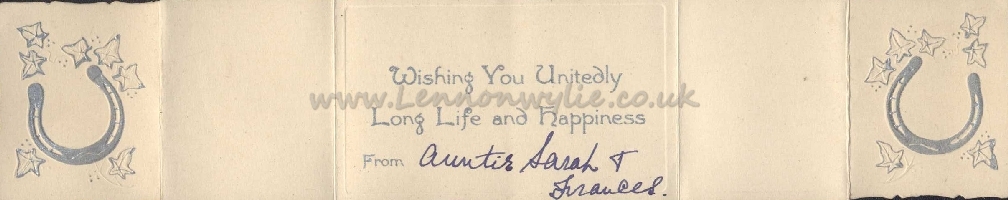 Wishing You Unitedly
www.Lennonwylie.co.uk
Long Life and Happiness
From Auntie Sarah &
Frances.